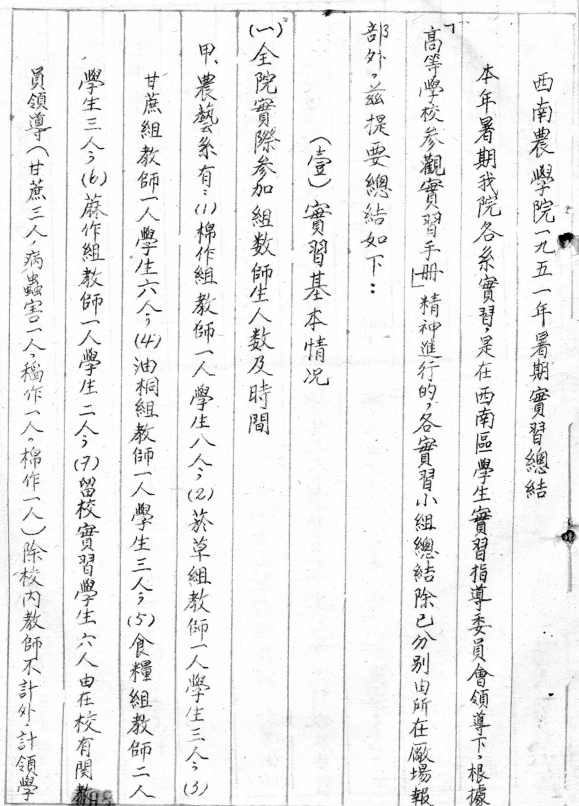 西南農學院一九五一年暑期實習總結
本年暑期我院各系實習，是在西南區學生實習指導委員會領導下，根據
「高等學校參觀實習手册」精神進行的，各實習小組總結除已分别由所在廠場報
部外，茲提要總結如下：
(壹)實習基本情况
(一)全院實際参加組数師生人数及時間
甲、農藝系有(1)棉作組教師一人學生八人；(2)菸草組教師一人學生三人；(3)
甘蔗組教師一人學生六人；(4)油桐組教師一人學生三人；(5)食糧組教師二人
學生三人；(6)蔴作組教師一人學生二人；(7)留校實習學生六人由在校有関教
員領導(甘蔗三人，病蟲害一人，稻作一人，棉作一人)除校内教師不計外，計領學